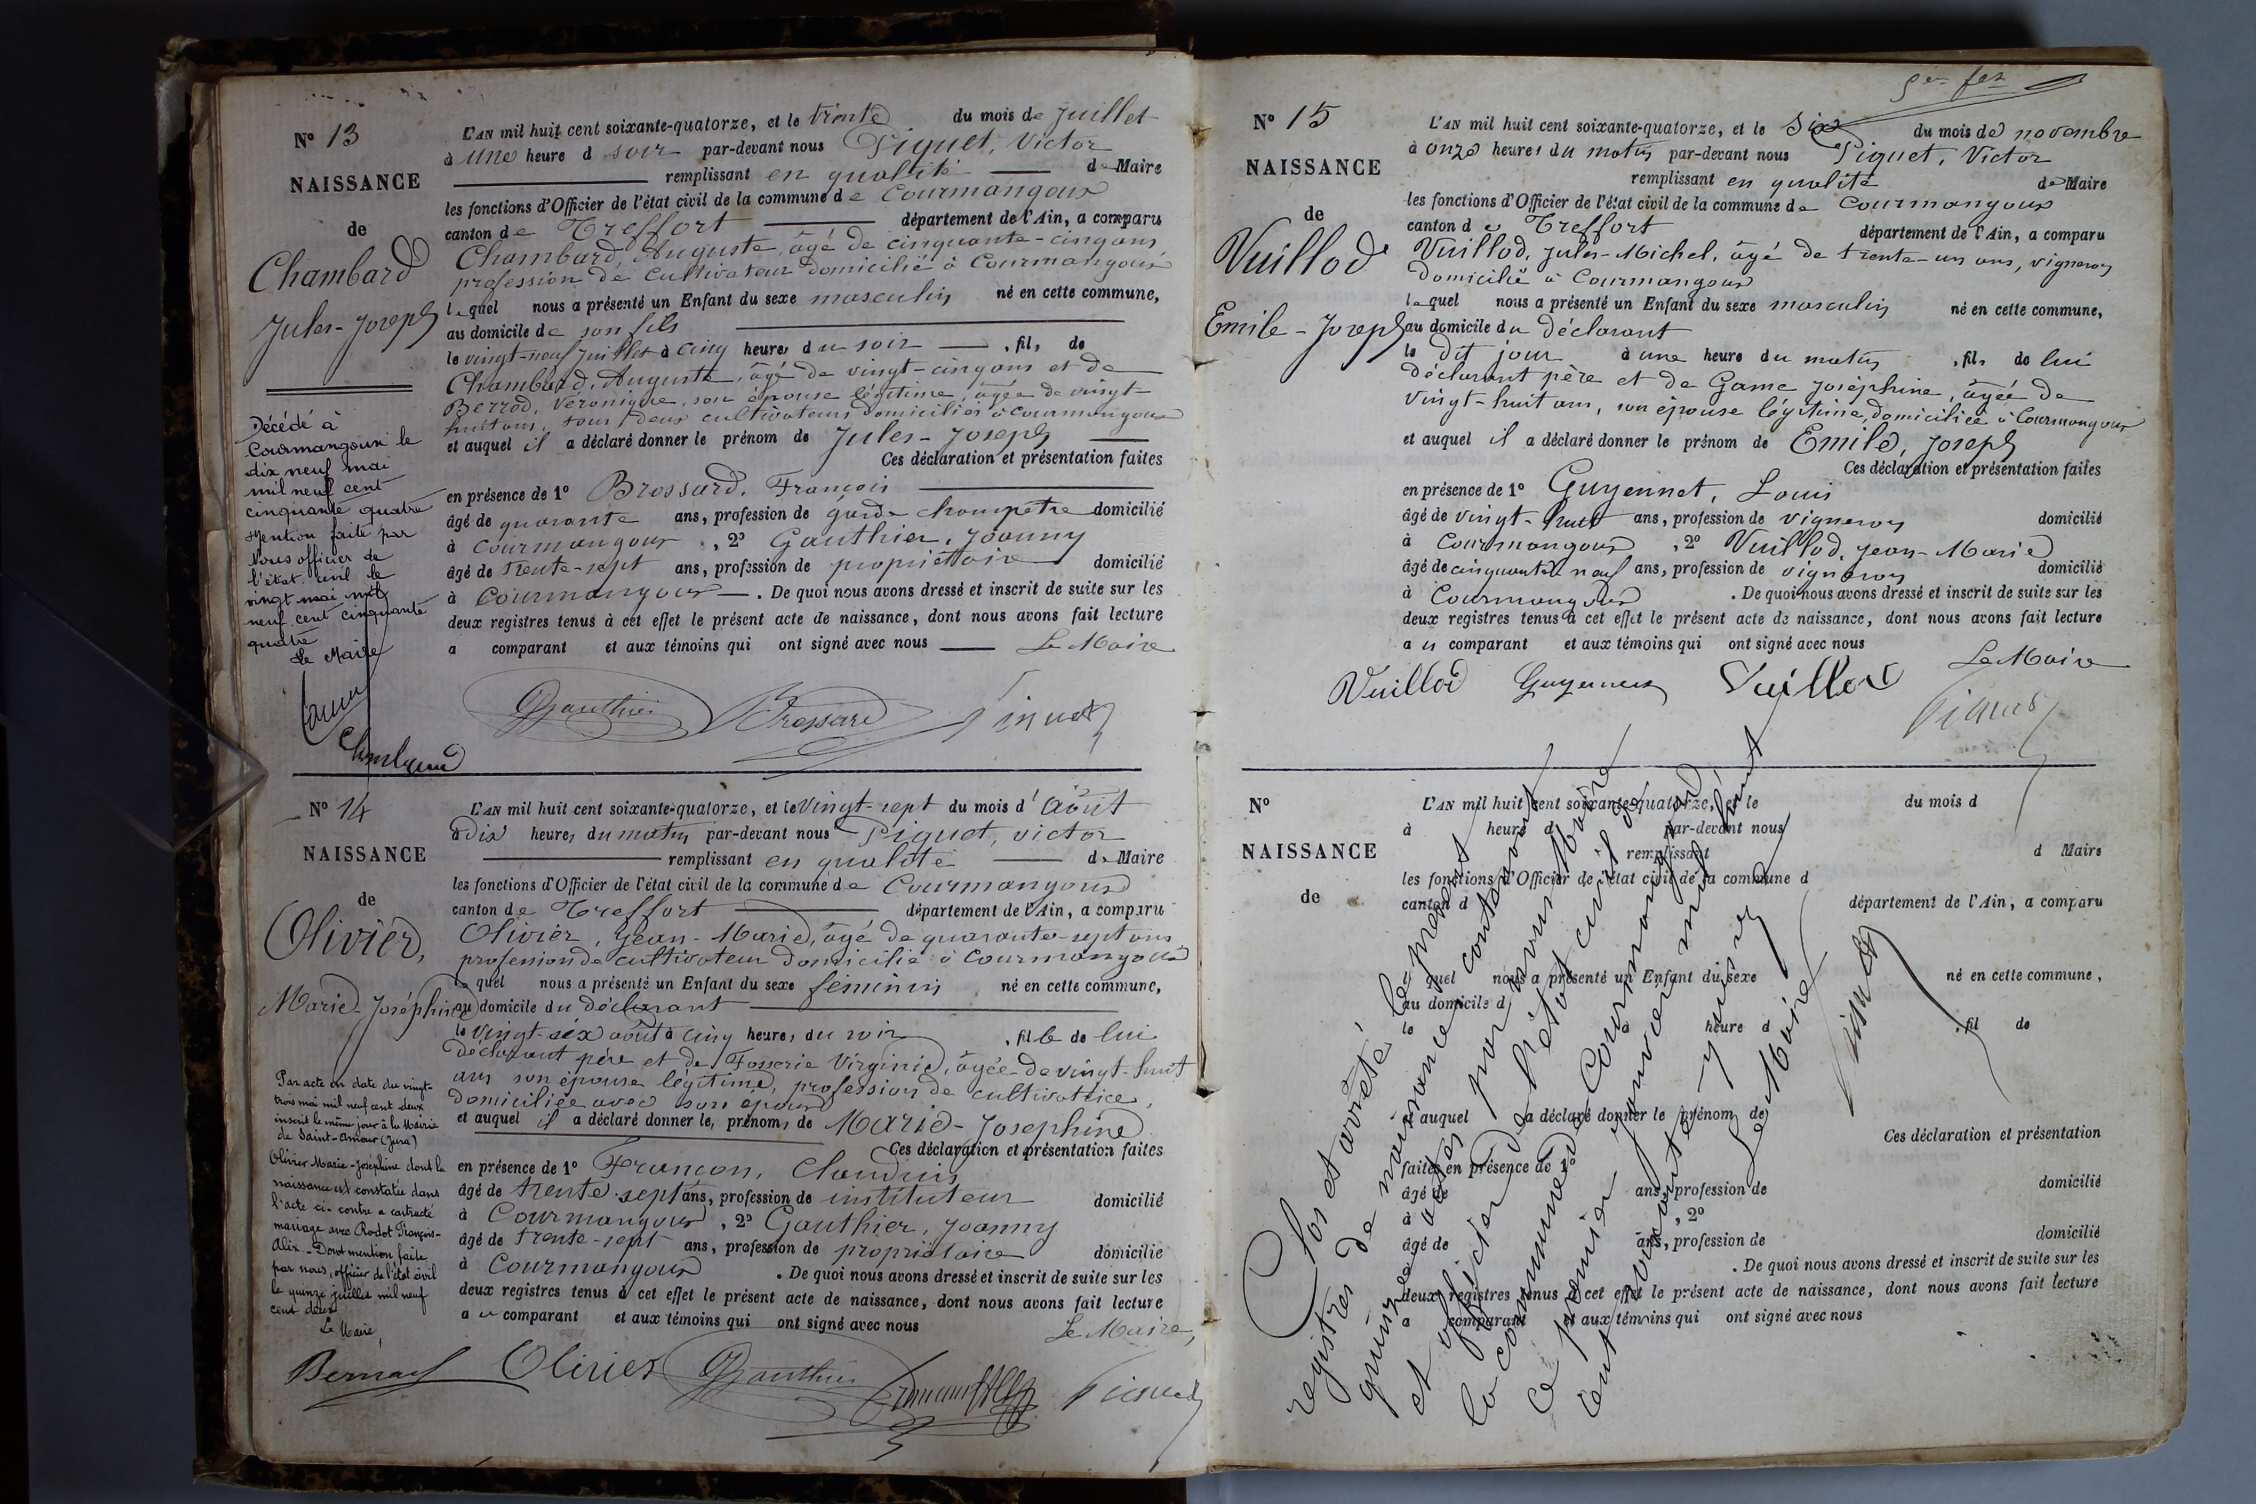 N° 13
NAISSANCE
de
Chambard
Jules-Joseph
Décédé à
Courmangoux le
dix neuf mai
mil neuf cent
cinquante quatre
Mention faite par
Nous officier de
l'état civil le
vingt mai mil
neuf cent cinquante
quatre
Le Maire
L'AN mil huit cent soixante-quatorze, et le trente du mois de Juillet
à une heure d soir par-devant nous Piquet, Victor
remplissant en qualité de Maire
les fonctions d'Officier de l'état civil de la commune de Courmangoux
canton de Treffort département de l'Ain, a comparu
Chambard, Auguste, âgé de cinquante-cinq ans
profession de cultivateur domicilié à Courmangoux
lequel nous a présenté un Enfant du sexe masculin né en cette commune,
au domicile de son fils
le vingt-neuf Juillet à cinq heures du soir , fils de
Chambard, Auguste, âgé de vingt-cinq ans et de
Berrod, Véronique, son épouse légitime, âgée de vingt-
huit ans, tous deux cultivateurs domiciliés à Courmangoux
et auquel il a déclaré donner le prénom de Jules-Joseph
Ces déclaration et présentation faites
en présence de 1° Brossard, François
âgé de quarante ans, profession de garde champêtre domicilié
à Courmangoux , 2° Gauthier, Joanny
âgé de trente-sept ans, profession de propriétaire domicilié
à Courmangoux . De quoi nous avons dressé et inscrit de suite sur les
deux registres tenus à cet effet le présent acte de naissance, dont nous avons fait lecture
a comparant et aux témoins qui ont signé avec nous Le Maire
Gauthier Brossard Piquet
N° 14
NAISSANCE
de
Olivier,
Marie-Joséphine
Par acte en date du vingt-
trois mai mil neuf cent deux
inscrit le même jour à la Mairie
de Saint-Amour (Jura)
Olivier Marie-Joséphine dont la
naissance est constatée dans
l'acte ci-contre a contracté
mariage avec Rodot François-
Alix. Dont mention faite
par nous, officier de l'état civil
le quinze juillet mil neuf
cent deux
Le Maire,
L'AN mil huit cent soixante-quatorze, et le vingt-sept du mois d'Août
à dix heures du matin par-devant nous Piquet, Victor
remplissant en qualité de Maire
les fonctions d'Officier de l'état civil de la commune de Courmangoux
canton de Treffort département de l'Ain, a comparu
Olivier, Jean-Marie, âgé de quarante-sept ans
profession de cultivateur domicilié à Courmangoux
lequel nous a présenté un Enfant du sexe féminin né en cette commune,
au domicile du déclarant
le vingt-six août à cinq heures du soir , fille de lui
déclarant père et de Fosserie Virginie, âgée de vingt-huit
ans son épouse légitime, profession de cultivatrice,
domiciliée avec son époux
et auquel il a déclaré donner les prénoms de Marie-Josephine
Ces déclaration et présentation faites
en présence de 1° Françon, Claudius
âgé de trente-sept ans, profession de instituteur domicilié
à Courmangoux , 2° Gauthier, Joanny
âgé de trente-sept ans, profession de propriétaire domicilié
à Courmangoux . De quoi nous avons dressé et inscrit de suite sur les
deux registres tenus à cet effet le présent acte de naissance, dont nous avons fait lecture
au comparant et aux témoins qui ont signé avec nous
Le Maire,
Olivier Gauthier Piquet
N° 15
NAISSANCE
de
Vuillod
Emile-Joseph
L'AN mil huit cent soixante-quatorze, et le Six du mois de novembre
à onze heures du matin par-devant nous Piquet, Victor
remplissant en qualité de Maire
les fonctions d'Officier de l'état civil de la commune de Courmangoux
canton de Treffort département de l'Ain, a comparu
Vuillod, Jules-Michel, âgé de trente-un ans, vigneron
domicilié à Courmangoux
lequel nous a présenté un Enfant du sexe masculin né en cette commune,
au domicile du déclarant
le dit jour à une heure du matin , fils de lui
déclarant père et de Game Joséphine, âgée de
vingt-huit ans, son épouse légitime, domiciliée à Courmangoux
et auquel il a déclaré donner le prénom de Emile, Joseph
Ces déclaration et présentation faites
en présence de 1° Guyennet, Louis
âgé de vingt-huit ans, profession de vigneron domicilié
à Courmangoux , 2° Vuillod, Jean-Marie
âgé de cinquante neuf ans, profession de vigneron domicilié
à Courmangoux . De quoi nous avons dressé et inscrit de suite sur les
deux registres tenus à cet effet le présent acte de naissance, dont nous avons fait lecture
au comparant et aux témoins qui ont signé avec nous
Le Maire
Vuillod Guyennet Vuillod Piquet
N°
NAISSANCE
de
L'AN mil huit cent soixante-quatorze, et le du mois d
à heure d par-devant nous
remplissant d Maire
les fonctions d'Officier de l'état civil de la commune d
canton d département de l'Ain, a comparu
quel nous a présenté un Enfant du sexe né en cette commune,
au domicile d
le à heure d , fil de
et auquel a déclaré donner le prénom de
Ces déclaration et présentation
faites en présence de 1°
âgé de ans, profession de domicilié
à , 2°
âgé de ans, profession de domicilié
à . De quoi nous avons dressé et inscrit de suite sur les
deux registres tenus à cet effet le présent acte de naissance, dont nous avons fait lecture
a comparant et aux témoins qui ont signé avec nous
Clos et arrêté les présents
registres de naissance contenant
quinze actes par nous Maire
et officier de l'état civil de
la commune de Courmangoux
ce premier janvier mil huit
cent soixante quinze
Le Maire
Piquet